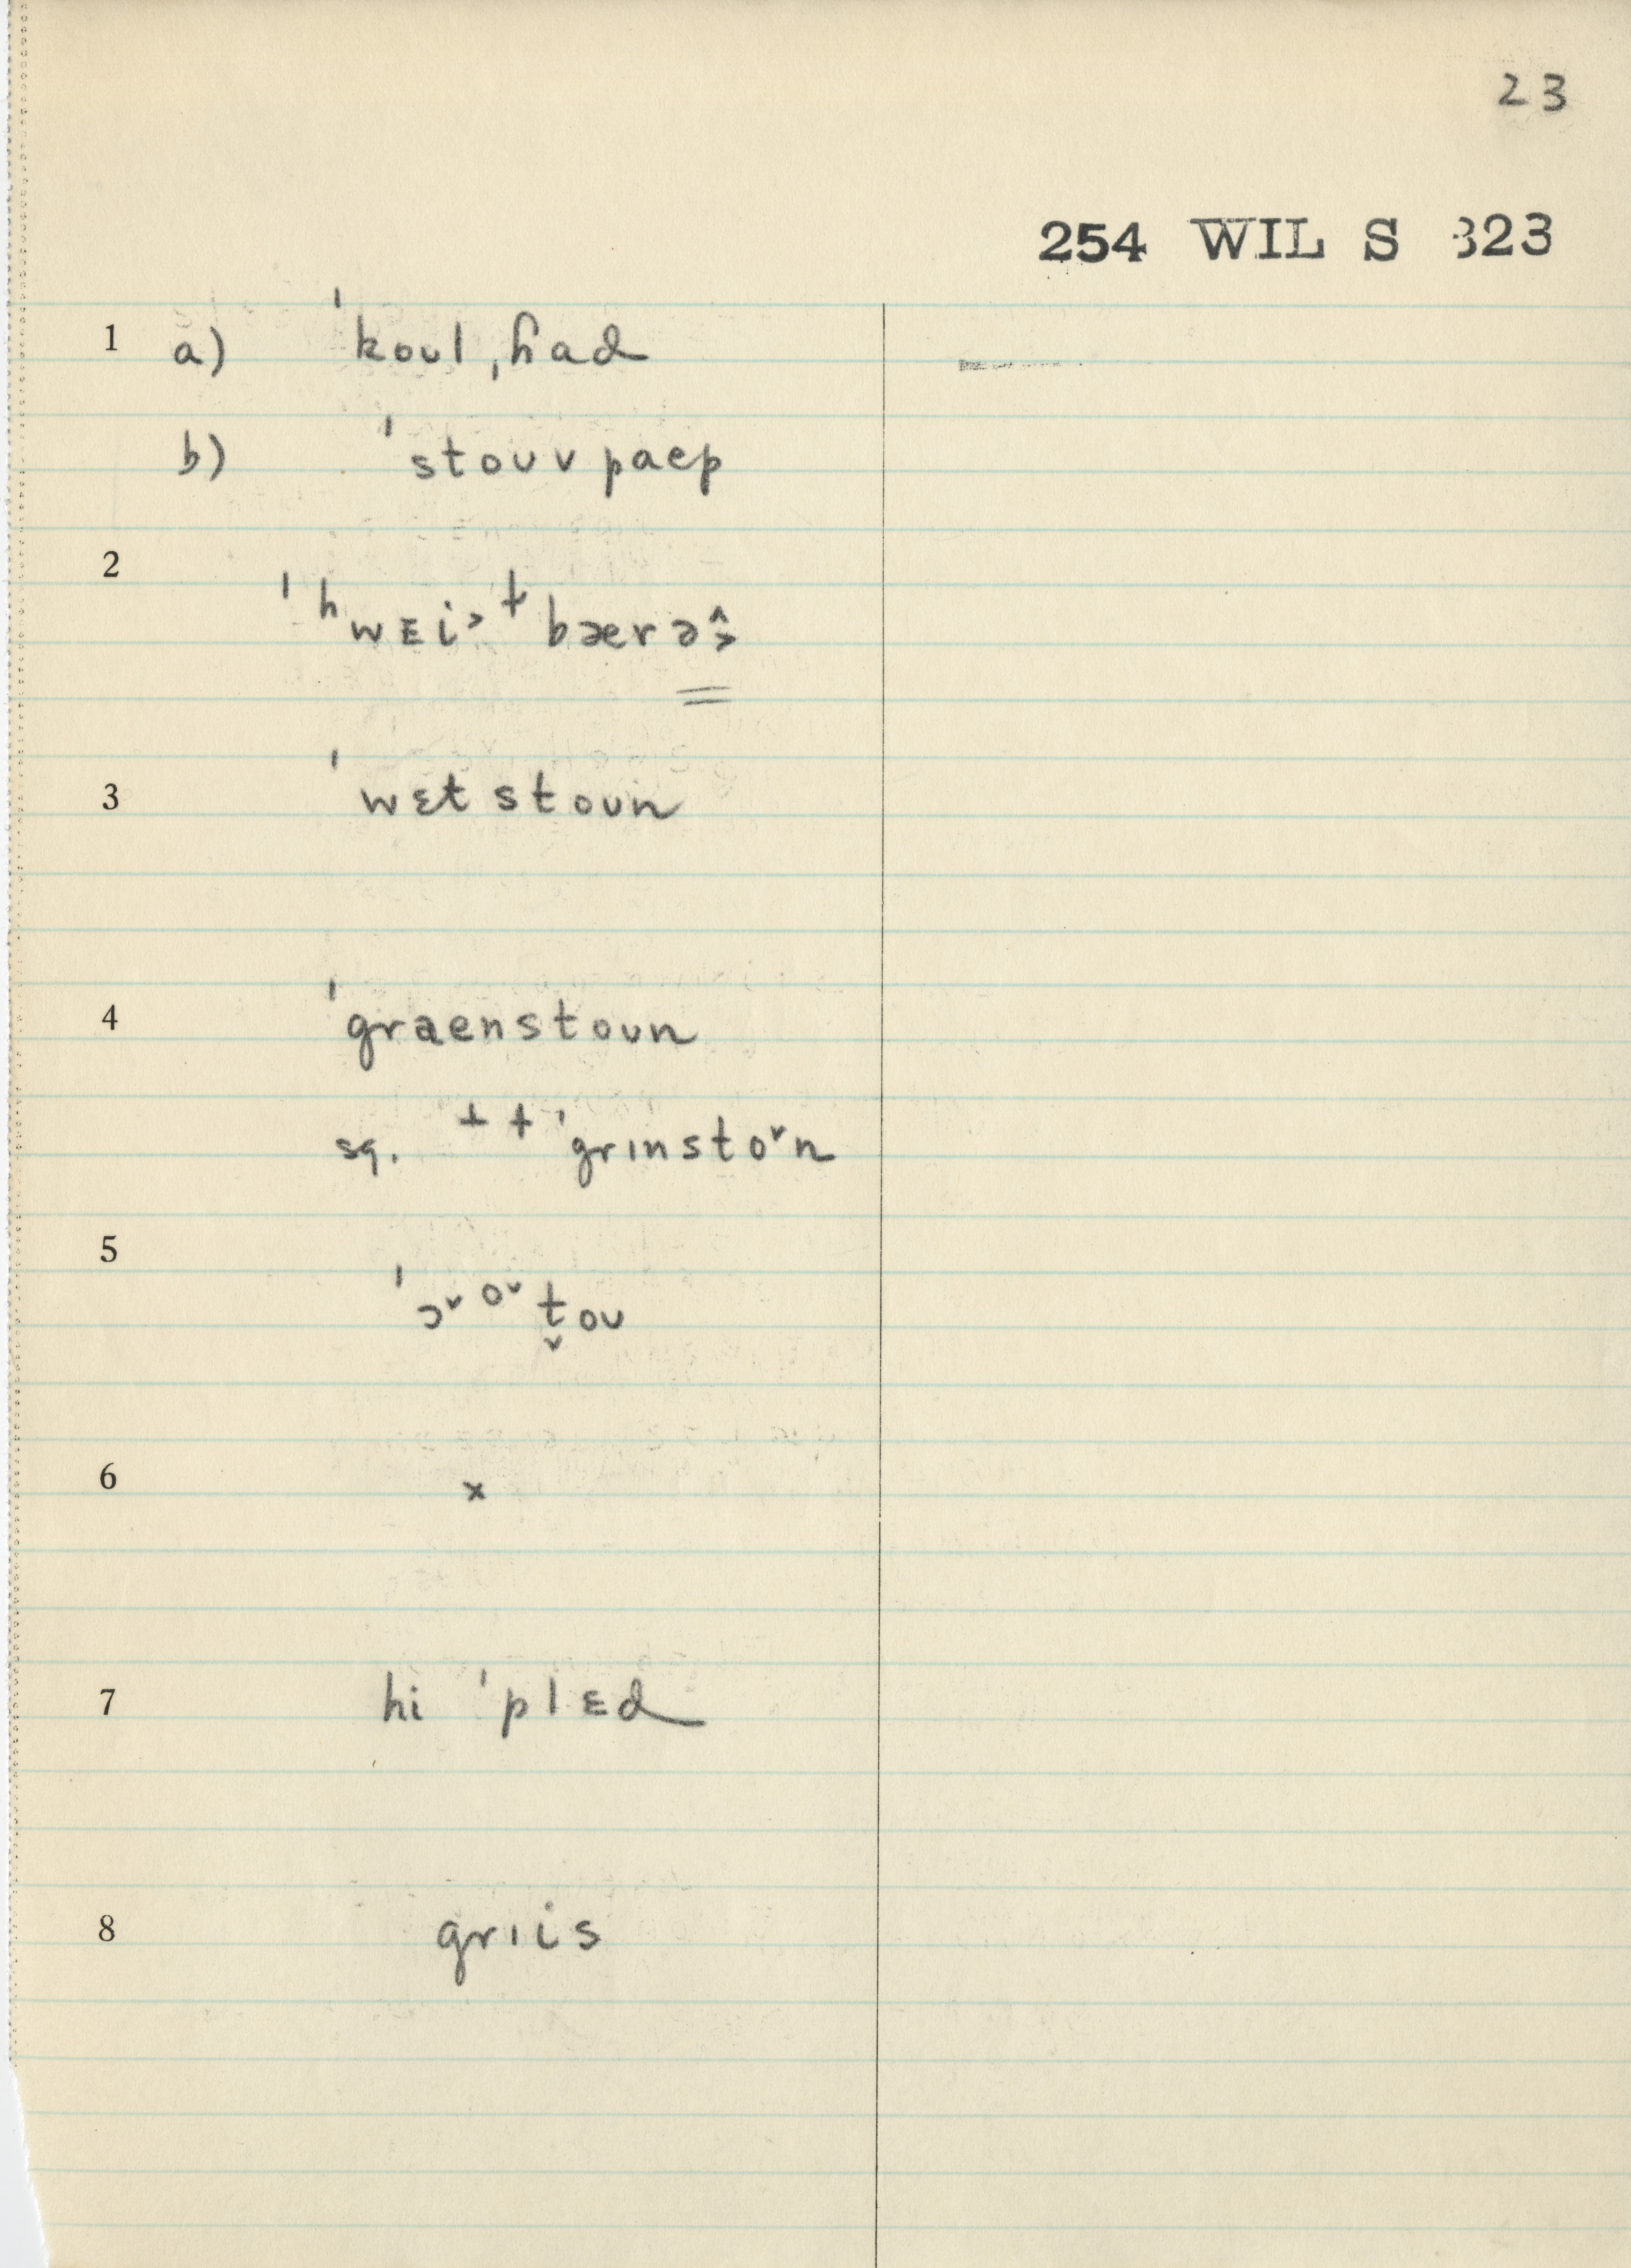 23
254 WIL S 323
1 a) ˈkoʊl ˌɦad
b) ˈstoʊv paep
2
ˈʰwɛi˃ ⁺ bærə˄˃
3 ˈwɛtstoʊn
4 ˈgraenstoʊn
sq. ⊥ + ˈgrɪnsto˅n
5
ˈɔ˅ᵒ˅t̬oʊ
6 x
7 hi ˈplɛd
8 grɪis